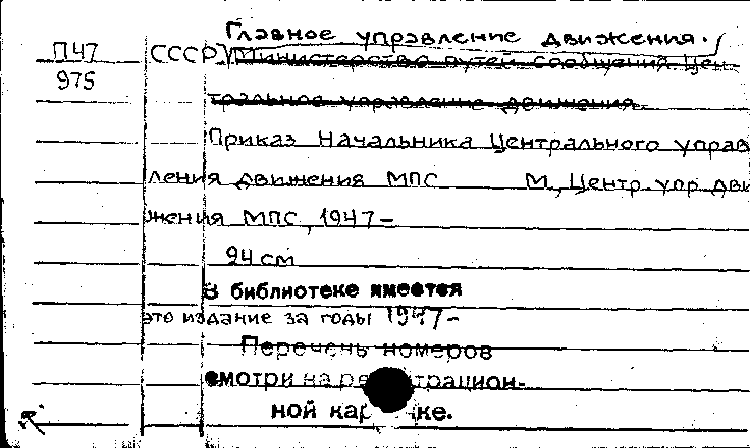 Главное управление движения.
П47 СССР, Министерство путей сообщения. Цен-
975
тральное управление движения.
Приказ Начальника Центрального управ
ления движения МПС М., Центр. упр. дви
жения МПС, 1947–
94 см
В библиотеке имеется
это издание за годы 1947–
Перечень номеров
смотри на трацион-
ной